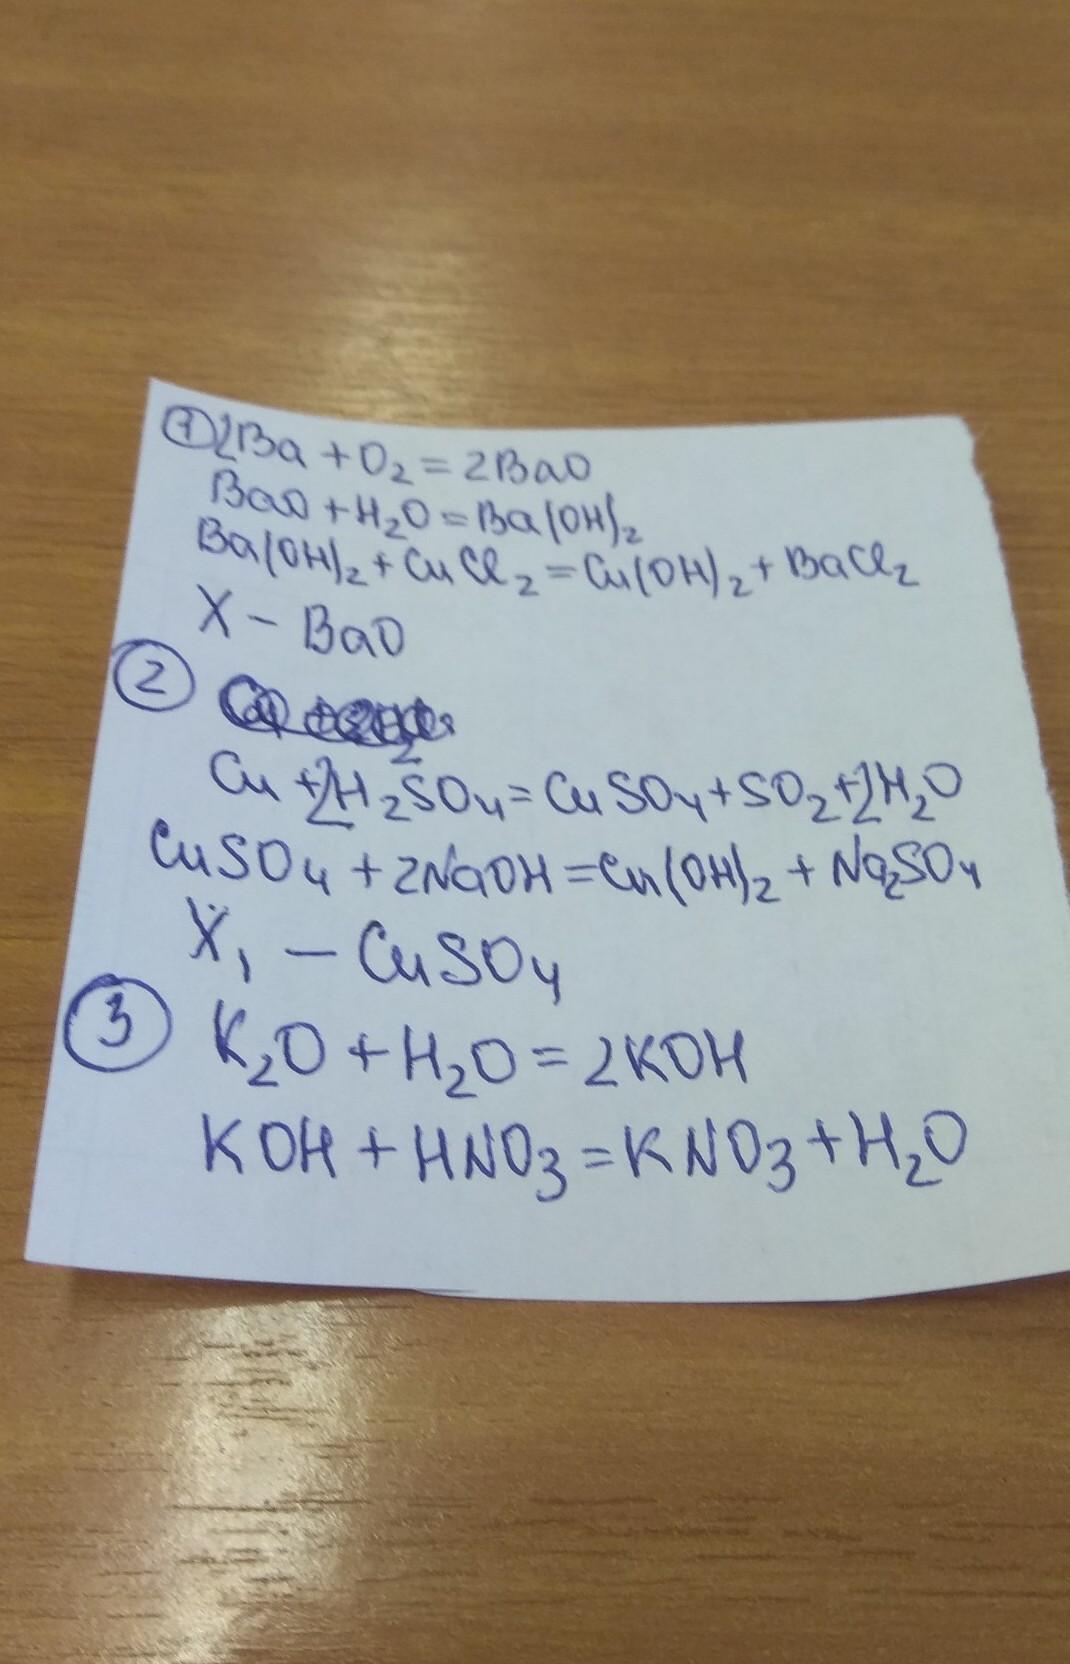 ① 2Ba + O₂ = 2BaO
BaO + H₂O = Ba(OH)₂
Ba(OH)₂ + CuCl₂ = Cu(OH)₂ + BaCl₂
X - BaO
②
Cu + 2H₂SO₄ = CuSO₄ + SO₂ + 2H₂O
CuSO₄ + 2NaOH = Cu(OH)₂ + Na₂SO₄
X₁ - CuSO₄
③ K₂O + H₂O = 2KOH
KOH + HNO₃ = KNO₃ + H₂O